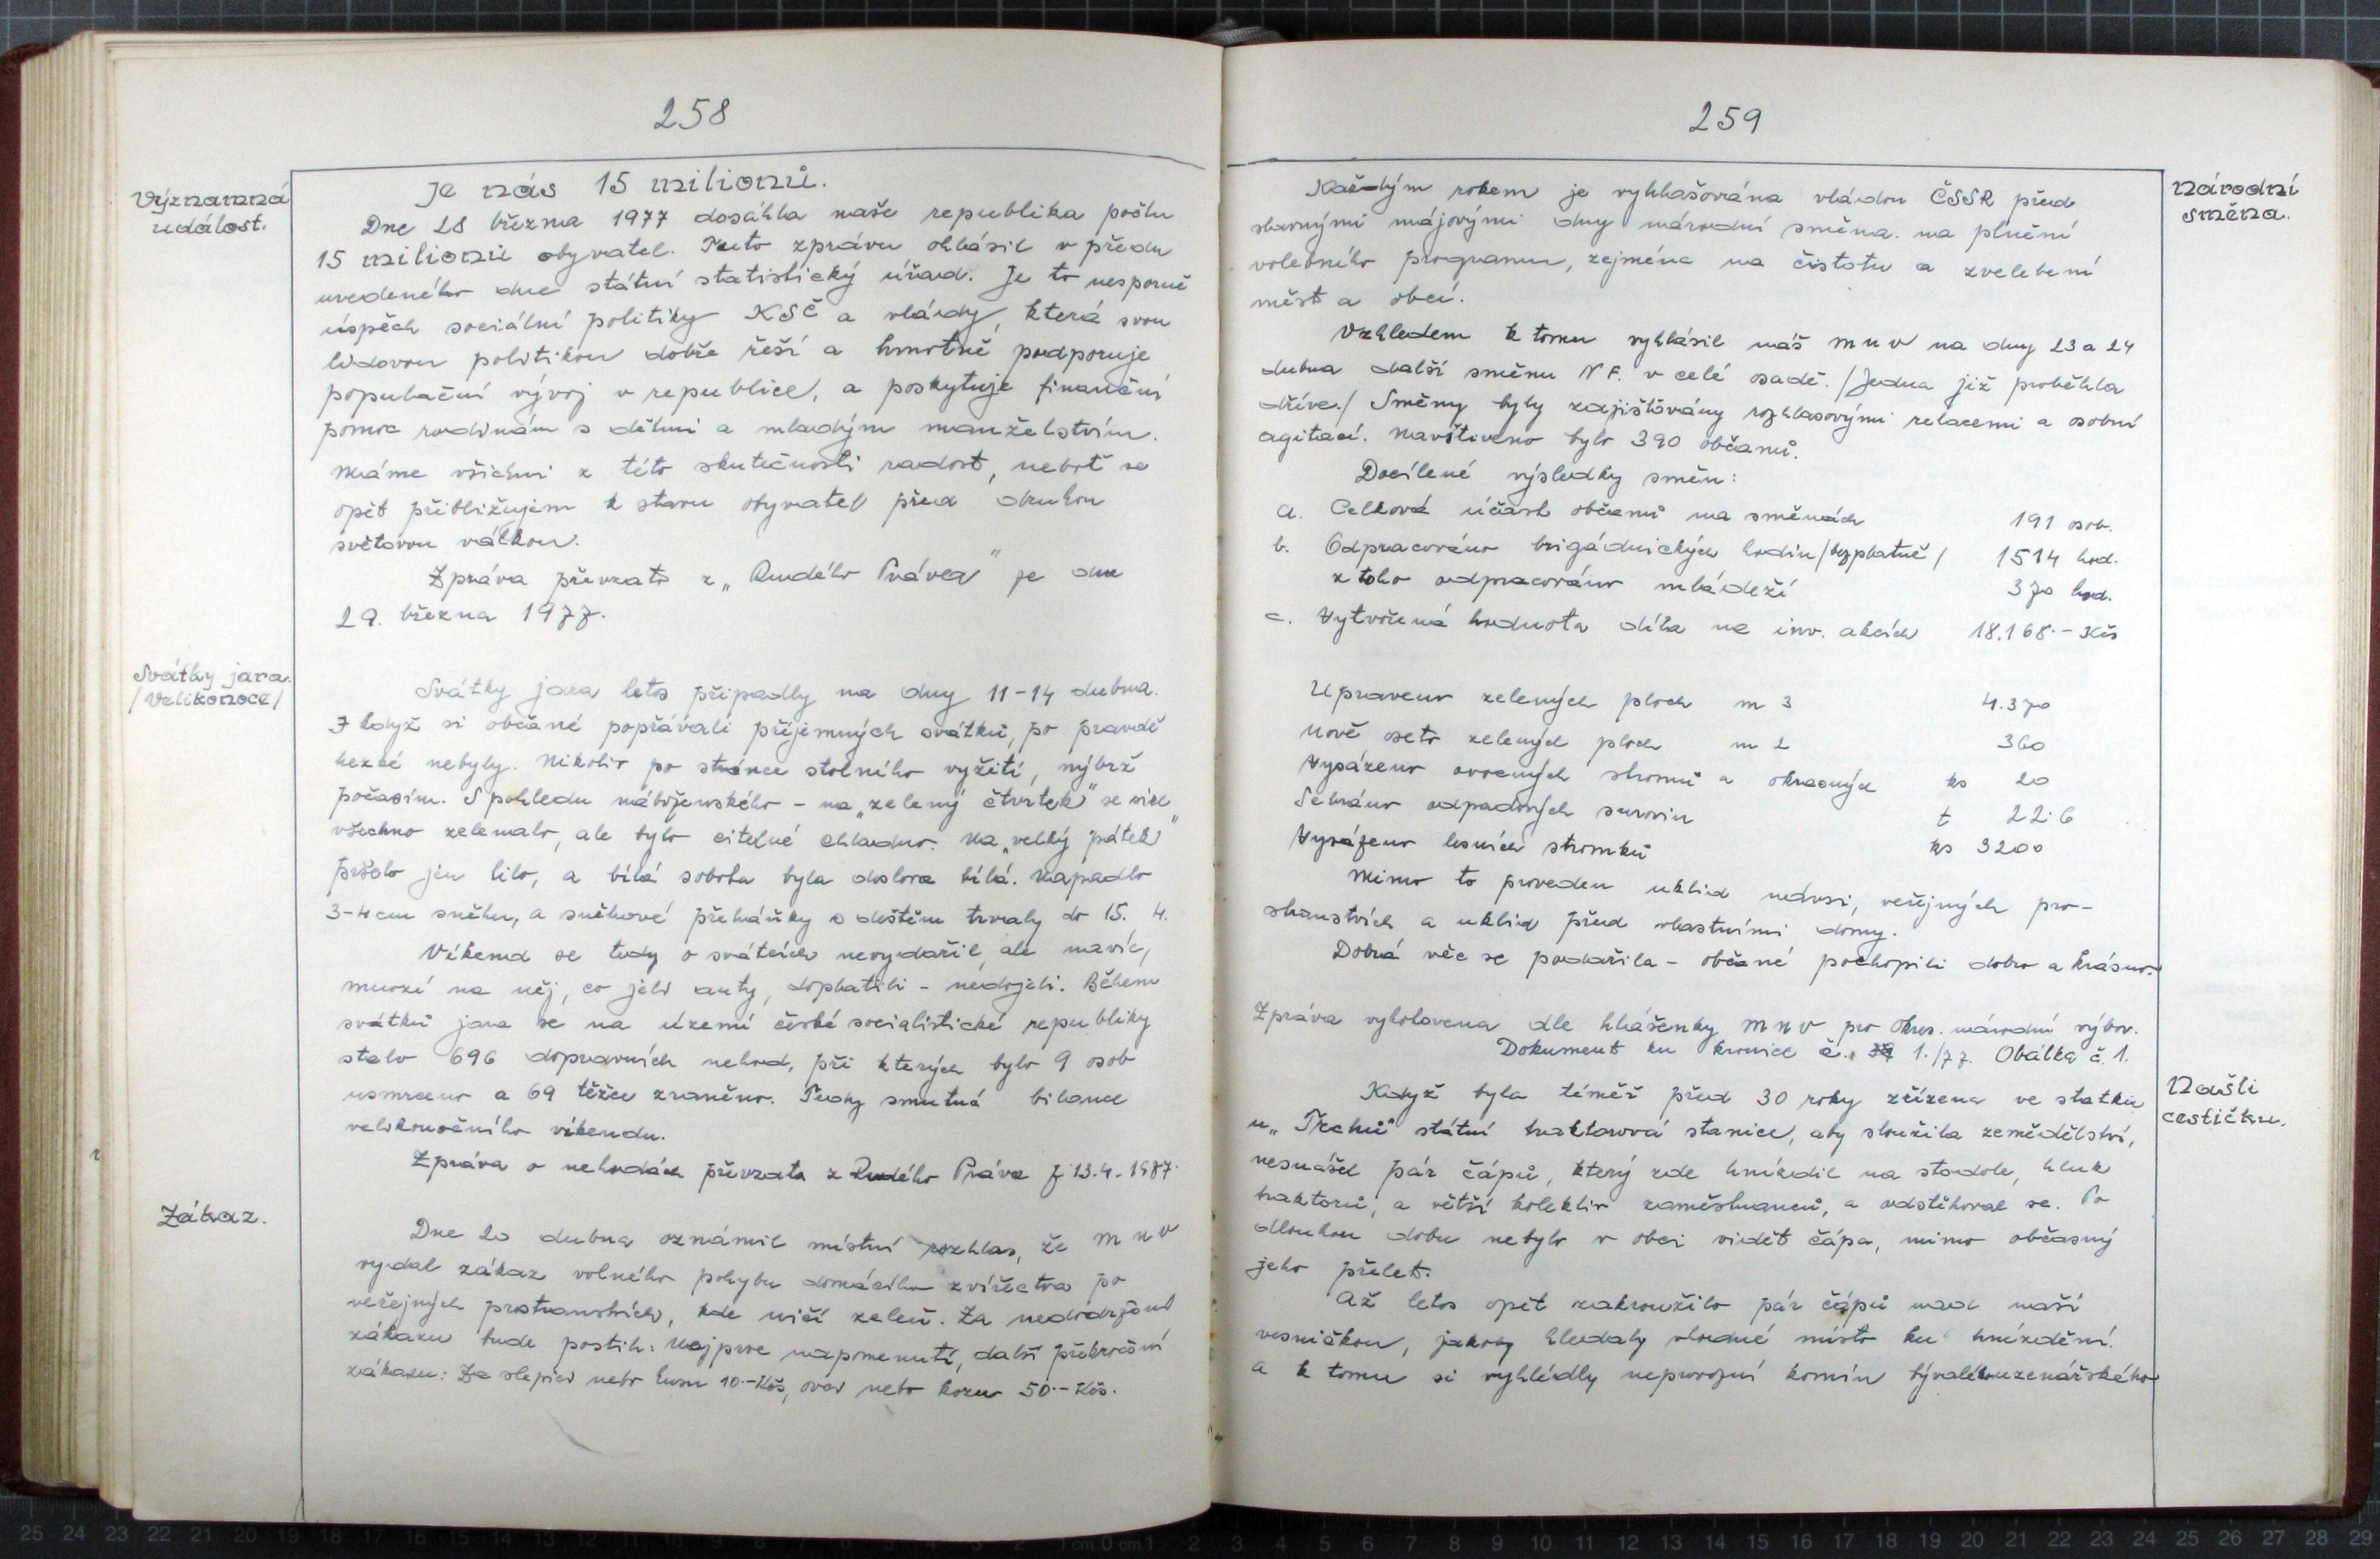 258
Významná
událost.
Je nás 15 milionů.
Dne 28 března 1977 dosáhla naše republika počtu
15 milionů obyvatel. Tuto zprávu ohlásil v předu
uvedeného dne státní statistický úřad. Je to nesporně
úspěch sociální politiky KSČ a vlády, která svou
lidovou politikou dobře řeší a hmotně podporuje
populační vývoj v republice, a poskytuje finanční
pomoc rodinám s dětmi a mladým manželstvím.
Máme všichni z této skutečnosti radost, neboť se
opět přibližujem k stavu obyvatel před druhou
světovou válkou.
Zpráva převzata z „Rudého Práva" ze dne
29. března 1977.
Svátky jara.
/Velikonoce/
Svátky jara letos připadly na dny 11-14 dubna.
I když si občané popřávali příjemných svátků, po pravdě
hezké nebyly. Nikoliv po stránce stolního vyžití, nýbrž
počasím. S pohledu náboženského - na „zelený čtvrtek" se sice
všechno zelenalo, ale bylo citelné chladno. Na „velký pátek"
pršelo jen lilo, a bílá sobota byla doslova bílá. Napadlo
3-4 cm sněhu, a sněhové přeháňky s deštěm trvaly do 15. 4.
Víkend se tedy o svátcích nevydařil, ale navíc,
mnozí na něj, co jeli auty, doplatili - nedojeli. Během
svátků jara se na území české socialistické republiky
stalo 696 dopravních nehod, při kterých bylo 9 osob
usmrceno a 69 těžce zraněno. Tedy smutná bilance
velikonočního víkendu.
Zpráva o nehodách převzata z Rudého Práva z 13.4.1987.
Zákaz.
Dne 20 dubna oznámil místní rozhlas, že MNV
vydal zákaz volného pohybu domácího zvířectva po
veřejných prostranstvích, kde ničí zeleň. Za nedodržení
zákazu bude postih: Nejprve napomenutí, další překročení
zákazu: Za slepici nebo husu 10.-Kčs, ovci nebo kozu 50.-Kčs.
259
Národní
směna.
Každým rokem je vyhlašována vládou ČSSR před
slavnými májovými dny národní směna. na plnění
volebního programu, zejména na čistotu a zvelebení
měst a obcí.
Vzhledem k tomu vyhlásil náš MNV na dny 23 a 24
dubna další směnu NF. v celé osadě. /Jedna již proběhla
dříve./ Směny byly zajišťovány rozhlasovými relacemi a osobní
agitací. Navštíveno bylo 390 občanů.
Docílené výsledky směn:
a. Celková účast občanů na směnách 191 osob.
b. Odpracováno brigádnických hodin /bezplatně/ 1514 hod.
z toho odpracováno mládeží 370 hod.
c. Vytvořená hodnota díla na inv. akcích 18.168.- Kčs
Upraveno zelených ploch m 3 4.370
Nově oseto zelených ploch m 2 360
Vysázeno ovocných stromů a okrasných ks 20
Sebráno odpadových surovin t 22.6
Vysázeno lesních stromků ks 3200
Mimo to proveden uklid návsi, veřejných pro-
stranstvích a uklid před vlastními domy.
Dobrá věc se podařila - občané pochopili dobro a krásno.
Zpráva vyhotovena dle hlášenky MNV pro Okres. národní výbor.
Dokument ku kronice č. 1./77. Obálka č. 1.
Našli
cestičku.
Když byla téměř před 30 roky zřízena ve statku
u „Trchů" státní traktorová stanice, aby sloužila zemědělství,
nesnášel pár čápů, který zde hnízdil na stodole, hluk
traktorů, a větší kolektiv zaměstnanců, a odstěhoval se. Po
dlouhou dobu nebylo v obci vidět čápa, mimo občasný
jeho přelet.
Až letos opět zakroužilo pár čápů nad naší
vesničkou, jakoby hledaly vhodné místo ku hnízdění.
a k tomu si vyhlédly neprovozní komín bývalého uzenářského